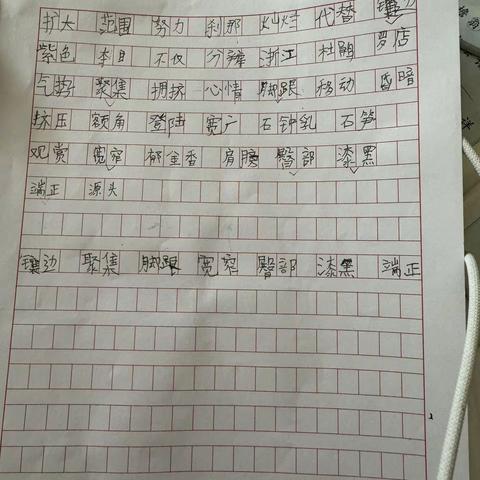 扩大 范围 努力 刹那 灿烂 代替 镶边
紫色 本日 不仅 分辨 浙江 杜鹃 罗店
气势 聚集 拥挤 心情 脚跟 移动 昏暗
挤压 额角 登陆 宽广 石钟乳 石笋
观赏 宽窄 郁金香 肩膀 臀部 漆黑
端正 源头
镶边 聚集 脚跟 宽窄 臀部 漆黑 端正